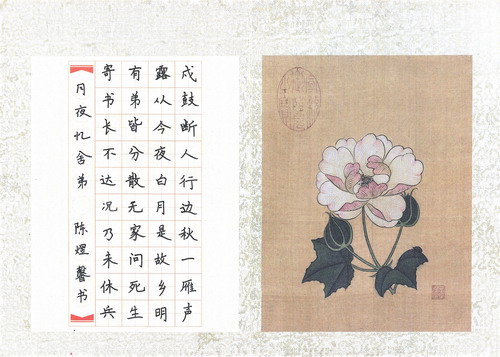 戍鼓断人行边秋一雁声
露从今夜白月是故乡明
有弟皆分散无家问死生
寄书长不达况乃未休兵
月夜忆舍弟 陈煜馨书